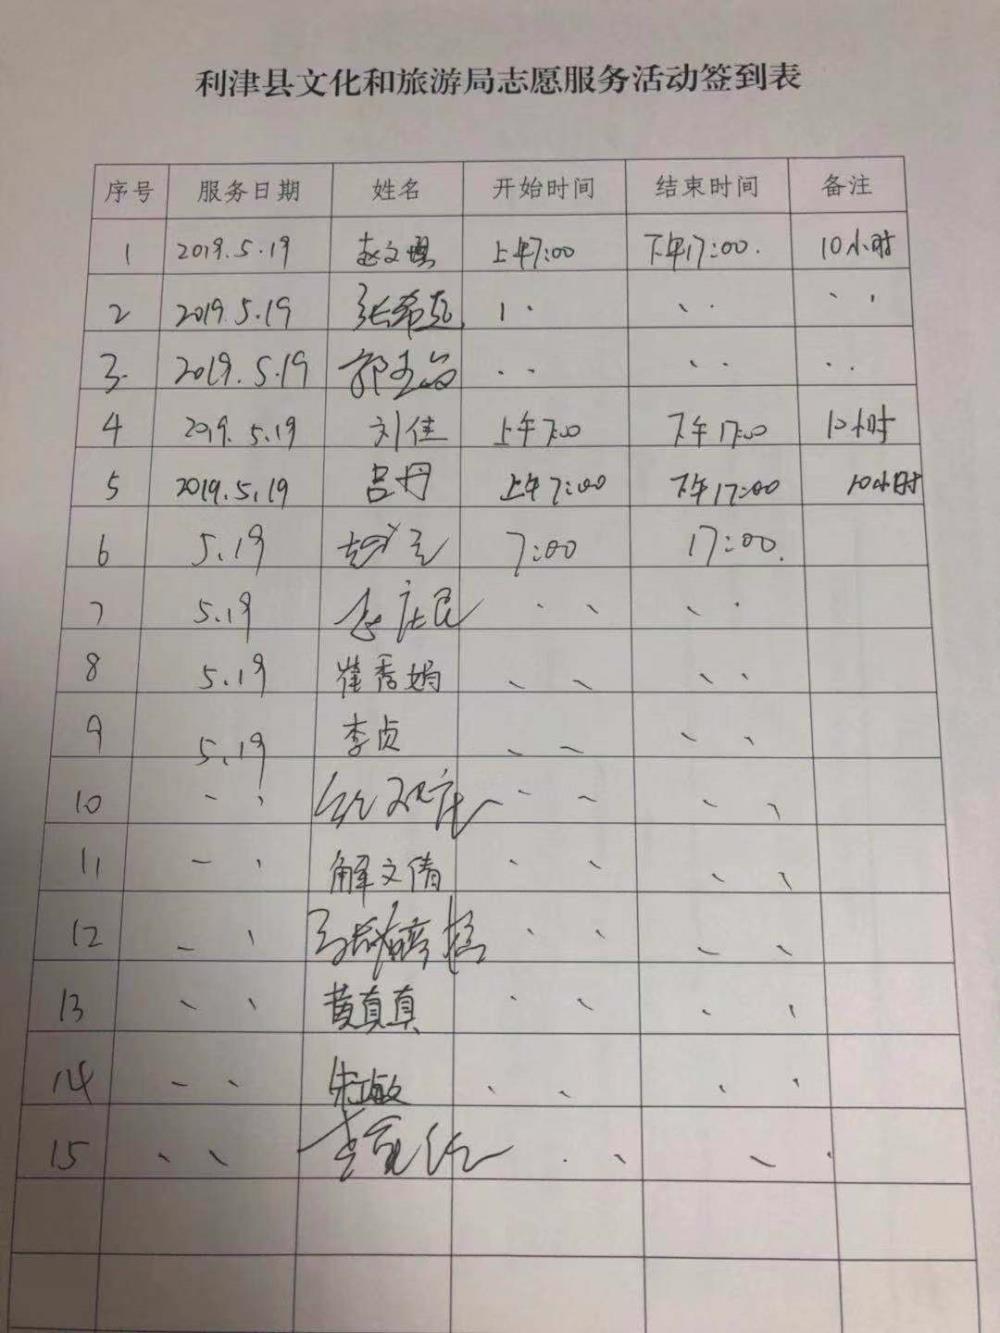 利津县文化和旅游局志愿服务活动签到表
序号 服务日期 姓名 开始时间 结束时间 备注
1 2019.5.19 赵文 上午7:00 下午17:00. 10小时
2 2019.5.19 张希 
3. 2019.5.19 郭
4 2019.5.19 刘佳 上午7:00 下午17:00 10小时
5 2019.5.19 吕丹 上午7:00 下午17:00 10小时
6 5.19 7:00 17:00.
7 5.19
8 5.19 崔秀娟
9 5.19 李贞
10
11 解文倩
12
13 黄真真
14 朱敏
15